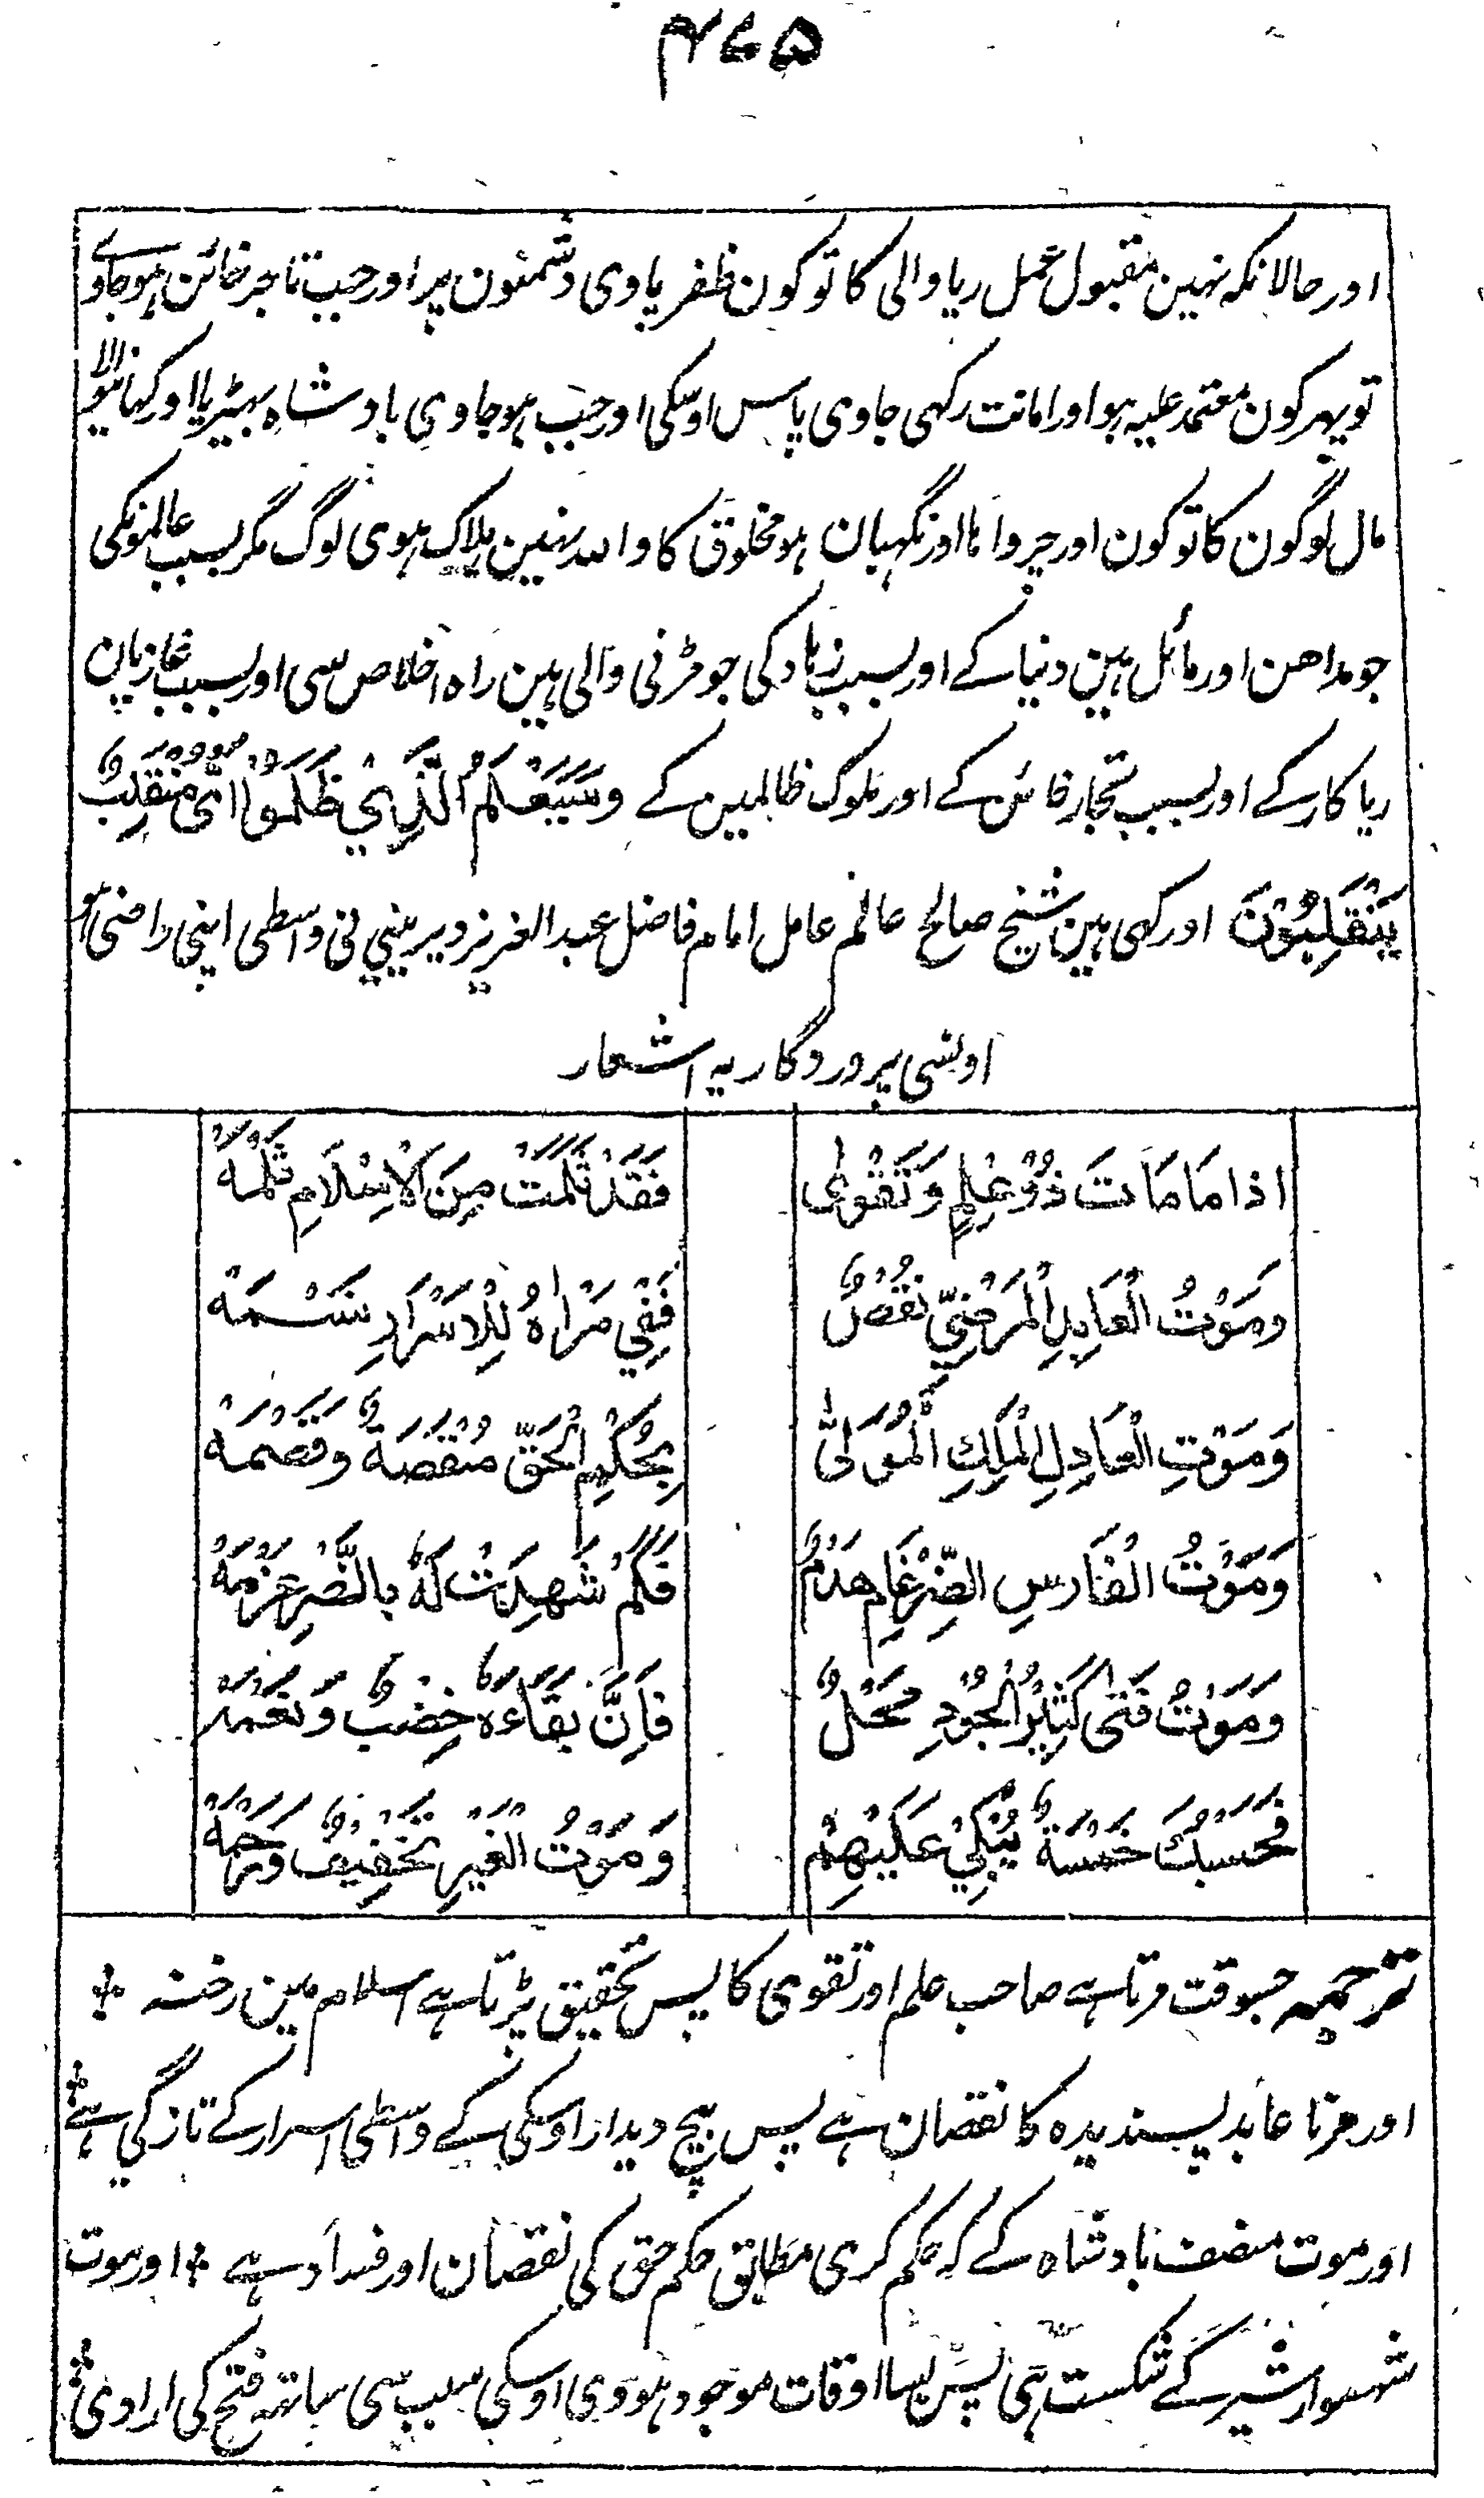 ۴۷۵
اور حالانکہ نہین مقبول عمل ریا والی کا تو کون ظفر یاوی دشمنون پر اور جب تاجر خائن ہوجاوے
تو پہر کون معتمد علیہ ہو اور امانت رکہی جاوی پاس اوسکی اور جب ہوجاوی بادشاہ بہیڑیا اور کہانیوالا
مال لوگون کا تو کون اور چرواہا اور نگہبان ہو مخلوق کا واللہ نہین ہلاک ہوی لوگ مگر بسبب عالمونکی
جو مداہن اور مائل ہین دنیا کے اور بسبب زہاد کی جو مڑنی والی ہین راہ اخلاص سی اور بسبب غازیان
ریا کار کے اور بسبب تجار خائن کے اور ملوک ظالمین کے وَسَيَعْلَمُ الَّذِيْنَ ظَلَمُوْا اَيَّ مُنْقَلَبٍ
يَنْقَلِبُوْنَ اور کہی ہین شیخ صالح عالم عامل امام فاضل عبد العزیز دیرینی نی واسطی اپنی راضی ہو
اونسی پروردگار یہ اشعار
اذا مَا مَاتَ ذُوْ عِلْمٍ وَتَقْوٰى فَقَدْ ثَلَمَتْ مِنَ الْاِسْلَامِ ثَلْمَةٌ
ومَوْتُ الْعَابِدِ الْمَرْضِيِّ نَقْصٌ فَفِي مَرْاٰهُ لِلْاَسْرَارِ نَسْمَة
وَمَوْتُ الْعَادِلِ الْمَلِكِ الْمُوَلّٰى بِحُكْمِ الْحَقِّ مَنْقَصَةٌ وَقَصْمَة
وَمَوْتُ الْفَارِسِ الضِّرْغَامِ هَدْمٌ فَكَمْ شَهِدَتْ لَهُ بِالنَّصْرِ عَزْمَةٌ
وَمَوْتُ فَتًى كَثِيْرِ الْجُوْدِ مَحْلٌ فَاِنَّ بَقَاءَهٗ خِصْبٌ وَنَعْمَة
فَحَسْبُكَ خَمْسَةٌ يُبْكٰي عَلَيْهِمْ وَمَوْتُ الْغَيْرِ تَخْفِيْفٌ وَرَحْمَةٌ
ترجمہ جسوقت مرتا ہے صاحب علم اور تقوی کا پس تحقیق پڑتا ہے اسلام مین رخنہ ؞
اور مرنا عابد پسندیدہ کا نقصان ہے پس بیچ دیدار اوسکی کے واسطی اسرار کے تازگی ہے ؞
اور موت منصف بادشاہ کے کہ حکم کری مطابق حکم حق کی نقصان اور فساد ہے ؞ اور موت
شہسوار شیر کے شکست ہی پس بسا اوقات موجود ہووی اوسکی سبب سی ساتہ فتح کی ارادی ؞